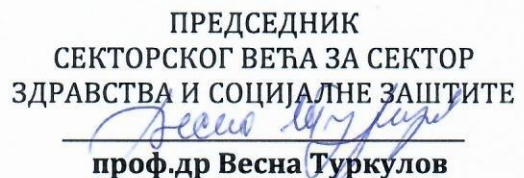 ПРЕДСЕДНИК
СЕКТОРСКОГ ВЕЋА ЗА СЕКТОР
ЗДРАВСТВА И СОЦИЈАЛНЕ ЗАШТИТЕ
Весна Туркулов
проф.др Весна Туркулов